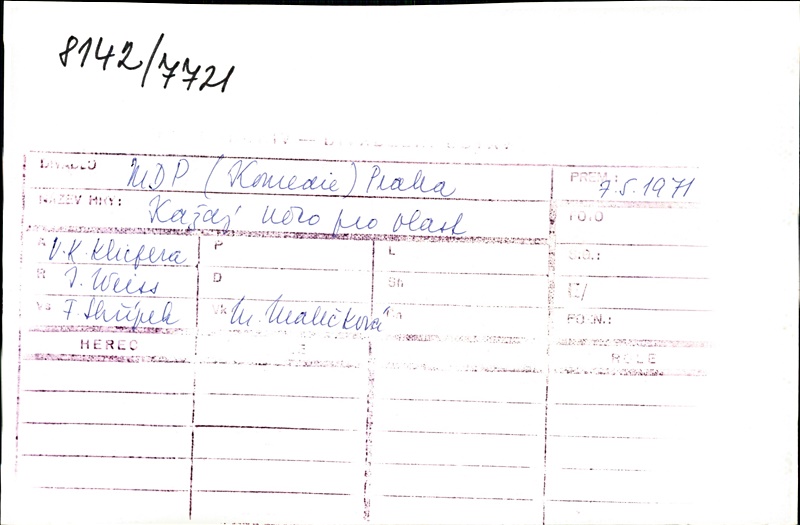 8142/7721
DIVADLO MDP (Komedie) Praha PREM.: 7.5.1971
NÁZEV HRY: Každý něco pro vlast FOTO
A V.K. Klicpera P L
R J. Weiss D Sh
VS F. Skřípek VK M. Maličková POZN.:
HEREC ROLE